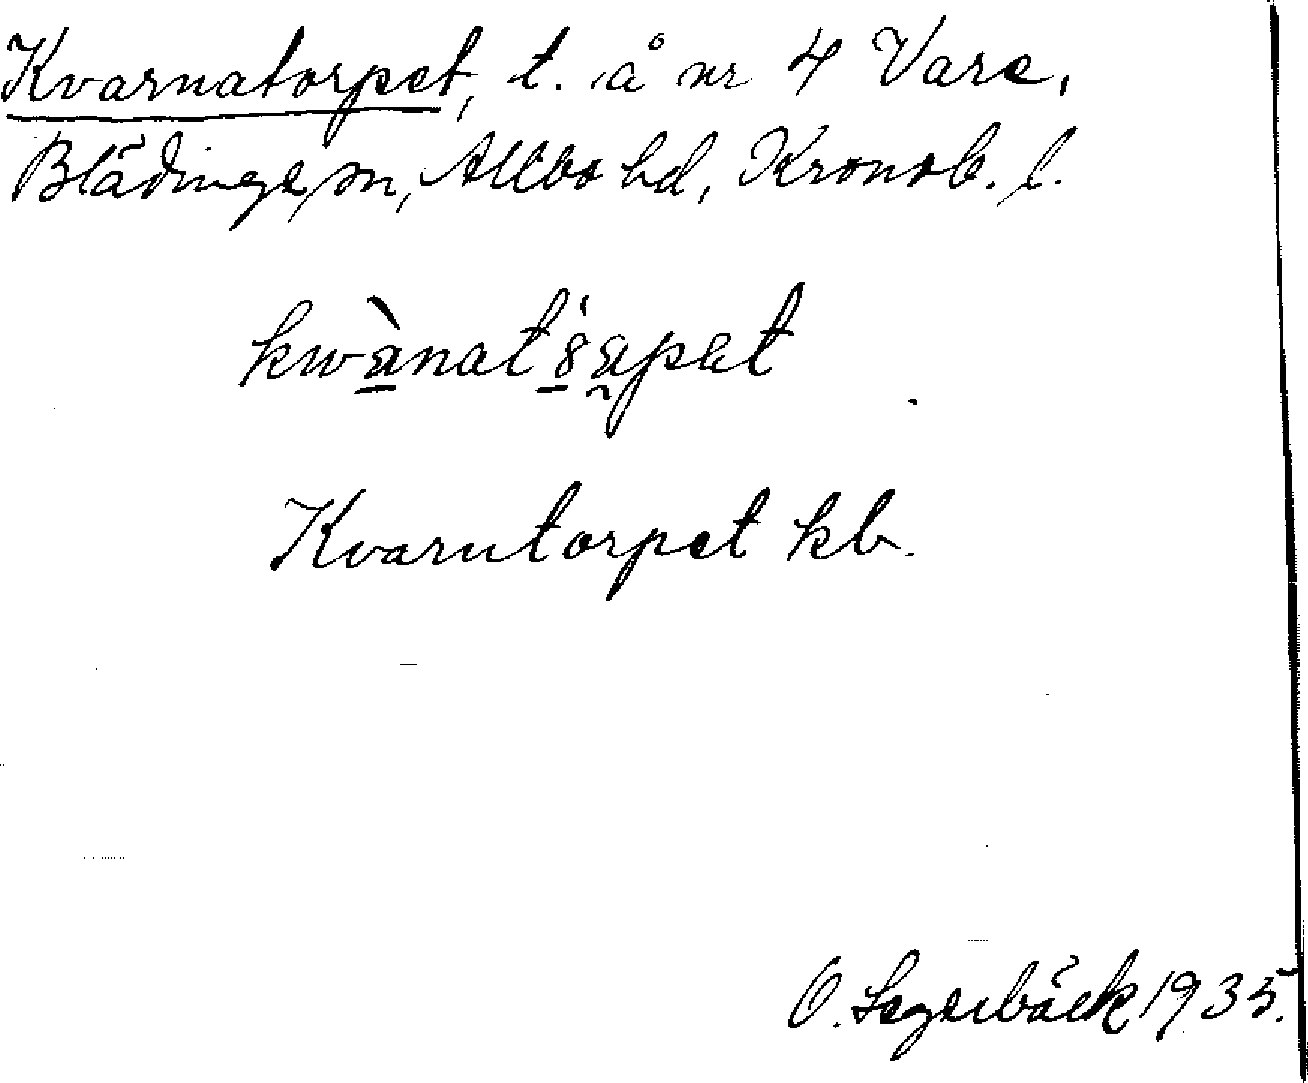 Kvarnatorpet, t. å nr 4 Vare,
Blädinge sn, Allbo hd, Kronob. l.
Kvarntorpet kb.
O. Segerbäck 1935.